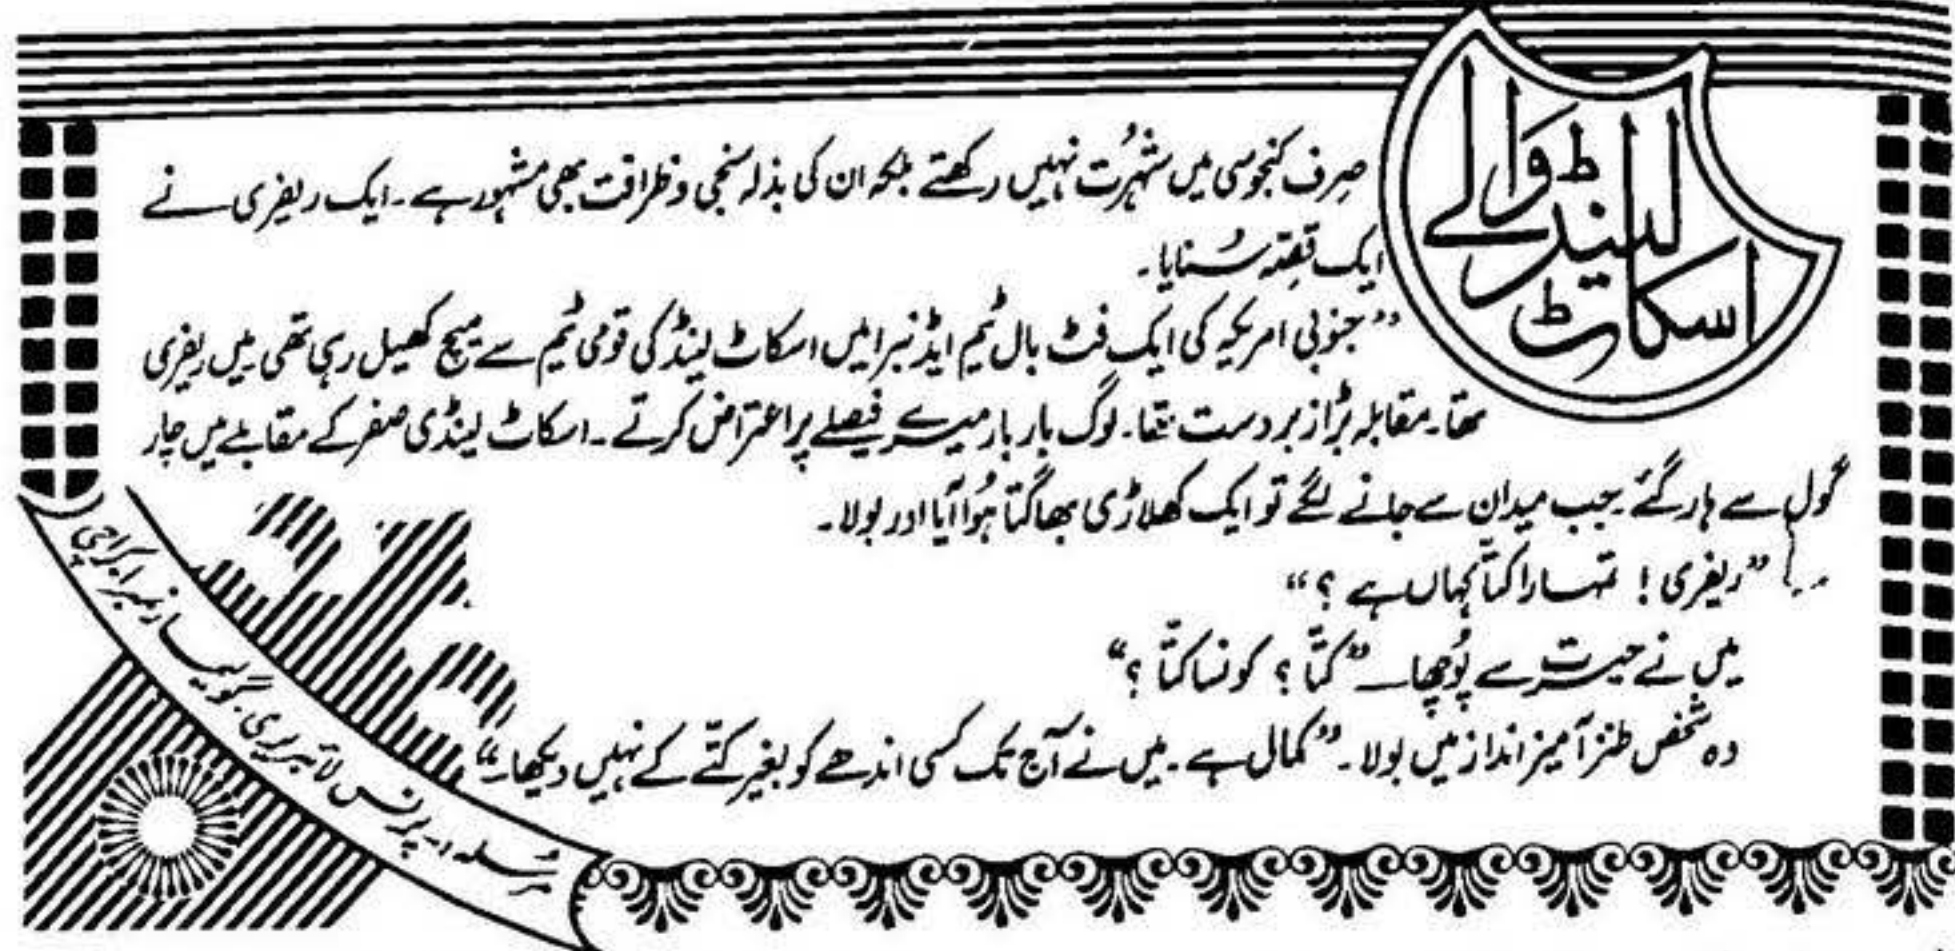 اسکاٹ لینڈ والے
صرف کنجوسی میں شہرُت نہیں رکھتے بلکہ ان کی بذلہ سنجی و ظرافت بھی مشہور ہے۔ ایک ریفری نے
ایک قصّہ سُنایا۔
”جنوبی امریکہ کی ایک فٹ بال ٹیم ایڈنبرا میں اسکاٹ لینڈ کی قومی ٹیم سے میچ کھیل رہی تھی میں ریفری
تھا۔ مقابلہ بڑا زبردست تھا۔ لوگ بار بار میرے فیصلے پر اعتراض کرتے۔ اسکاٹ لینڈی صفر کے مقابلے میں چار
گول سے ہار گئے۔ جب میدان سے جانے لگے تو ایک کھلاڑی بھاگتا ہُوا آیا اور بولا۔
”ریفری! تمہارا کتّا کہاں ہے؟“
میں نے حیرت سے پُوچھا۔ ”کتّا؟ کونسا کتّا؟“
وہ شخص طنز آمیز انداز میں بولا۔ ”کمال ہے۔ میں نے آج تک کسی اندھے کو بغیر کتّے کے نہیں دیکھا۔“
مُرسلہ:۔ پرنس لائبریری۔ گولیمار نمبر ۱۔ کراچی